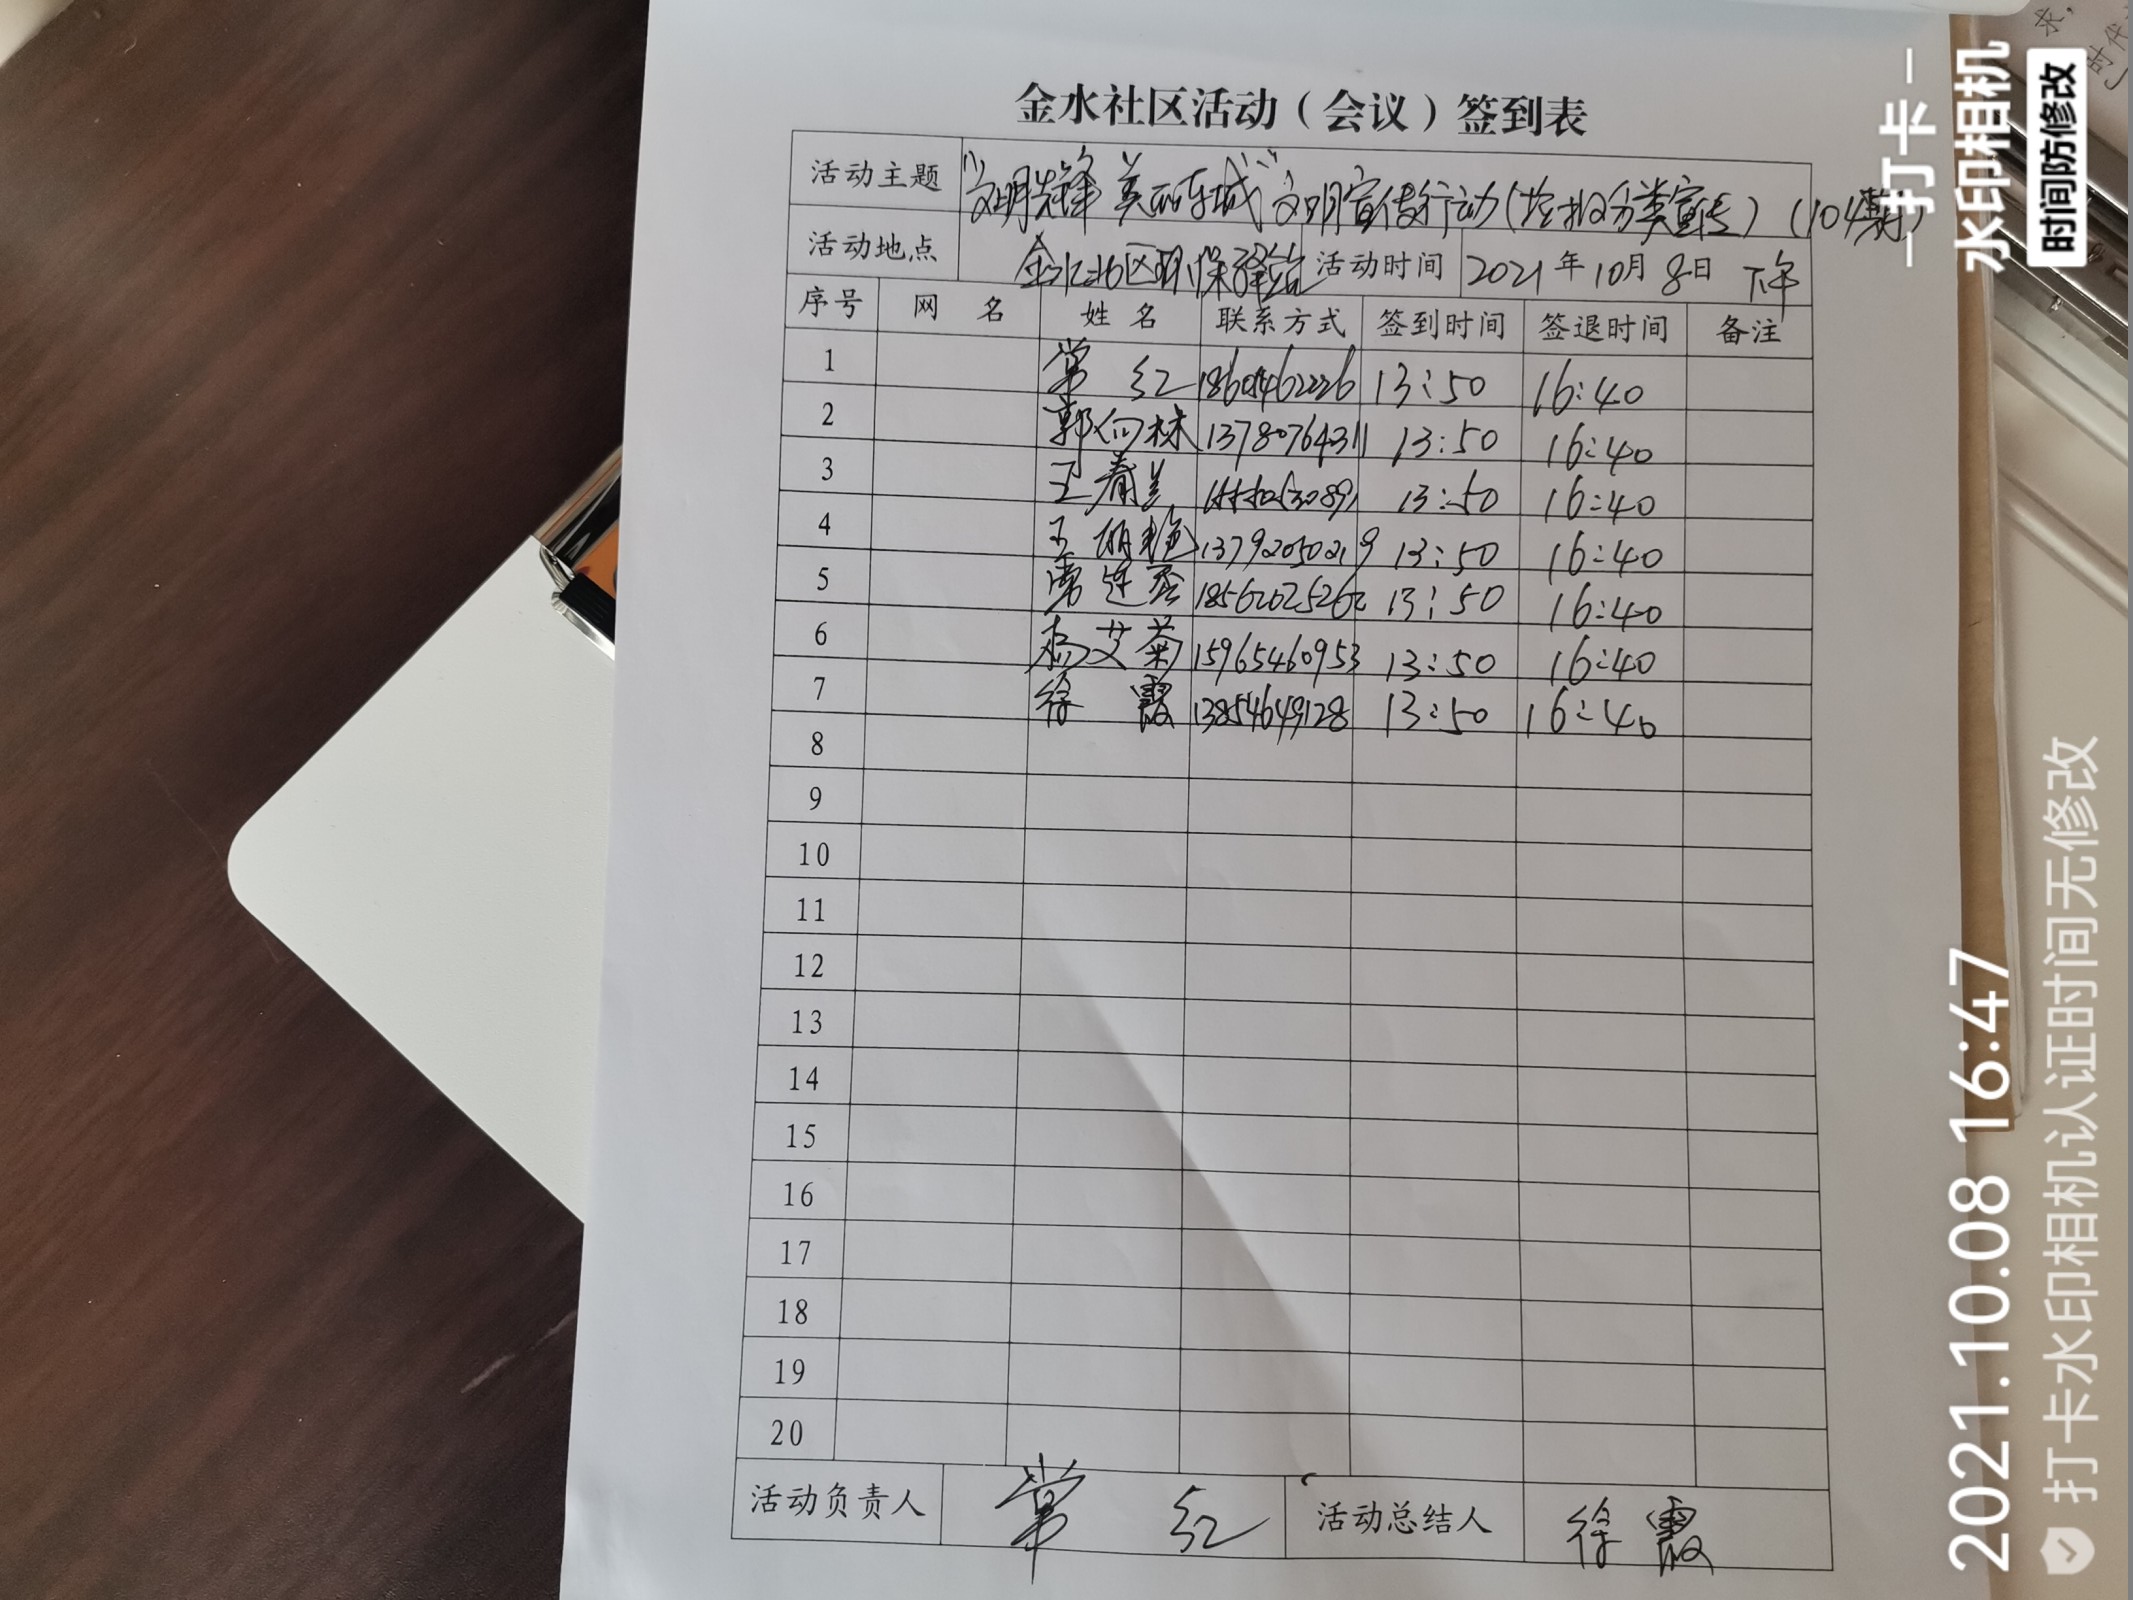 金水社区活动（会议）签到表
活动主题 "文明先锋 美丽东城"文明宣传行动(垃圾分类宣传)(104期)
活动地点 金水社区环保驿站 活动时间 2021年10月8日 下午
序号 网名 姓名 联系方式 签到时间 签退时间 备注
1 常红 13:50 16:40
2 郭向林 13780764311 13:50 16:40
3 王春美 13:50 16:40
4 王丽艳 13792050219 13:50 16:40
5 18562025262 13:50 16:40
6 杨艾菊 15965460953 13:50 16:40
7 徐霞 13854649128 13:50 16:40
8
9
10
11
12
13
14
15
16
17
18
19
20
活动负责人 常红 活动总结人 徐霞
打卡
水印相机
时间防修改
2021.10.08 16:47
打卡水印相机认证时间无修改